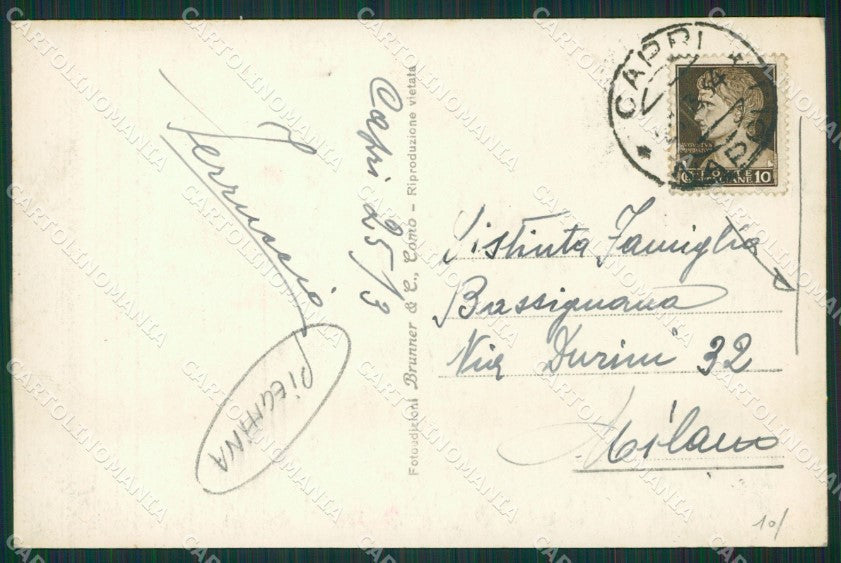 Ferruccio
PIEGHINA
Capri 25/3
Fotoedizioni Brunner & C., Como - Riproduzione vietata
CAPRI
10
Distinta Famiglia
Bassignana
Via Durini 32
Milano
10/
CARTOLINOMANIA